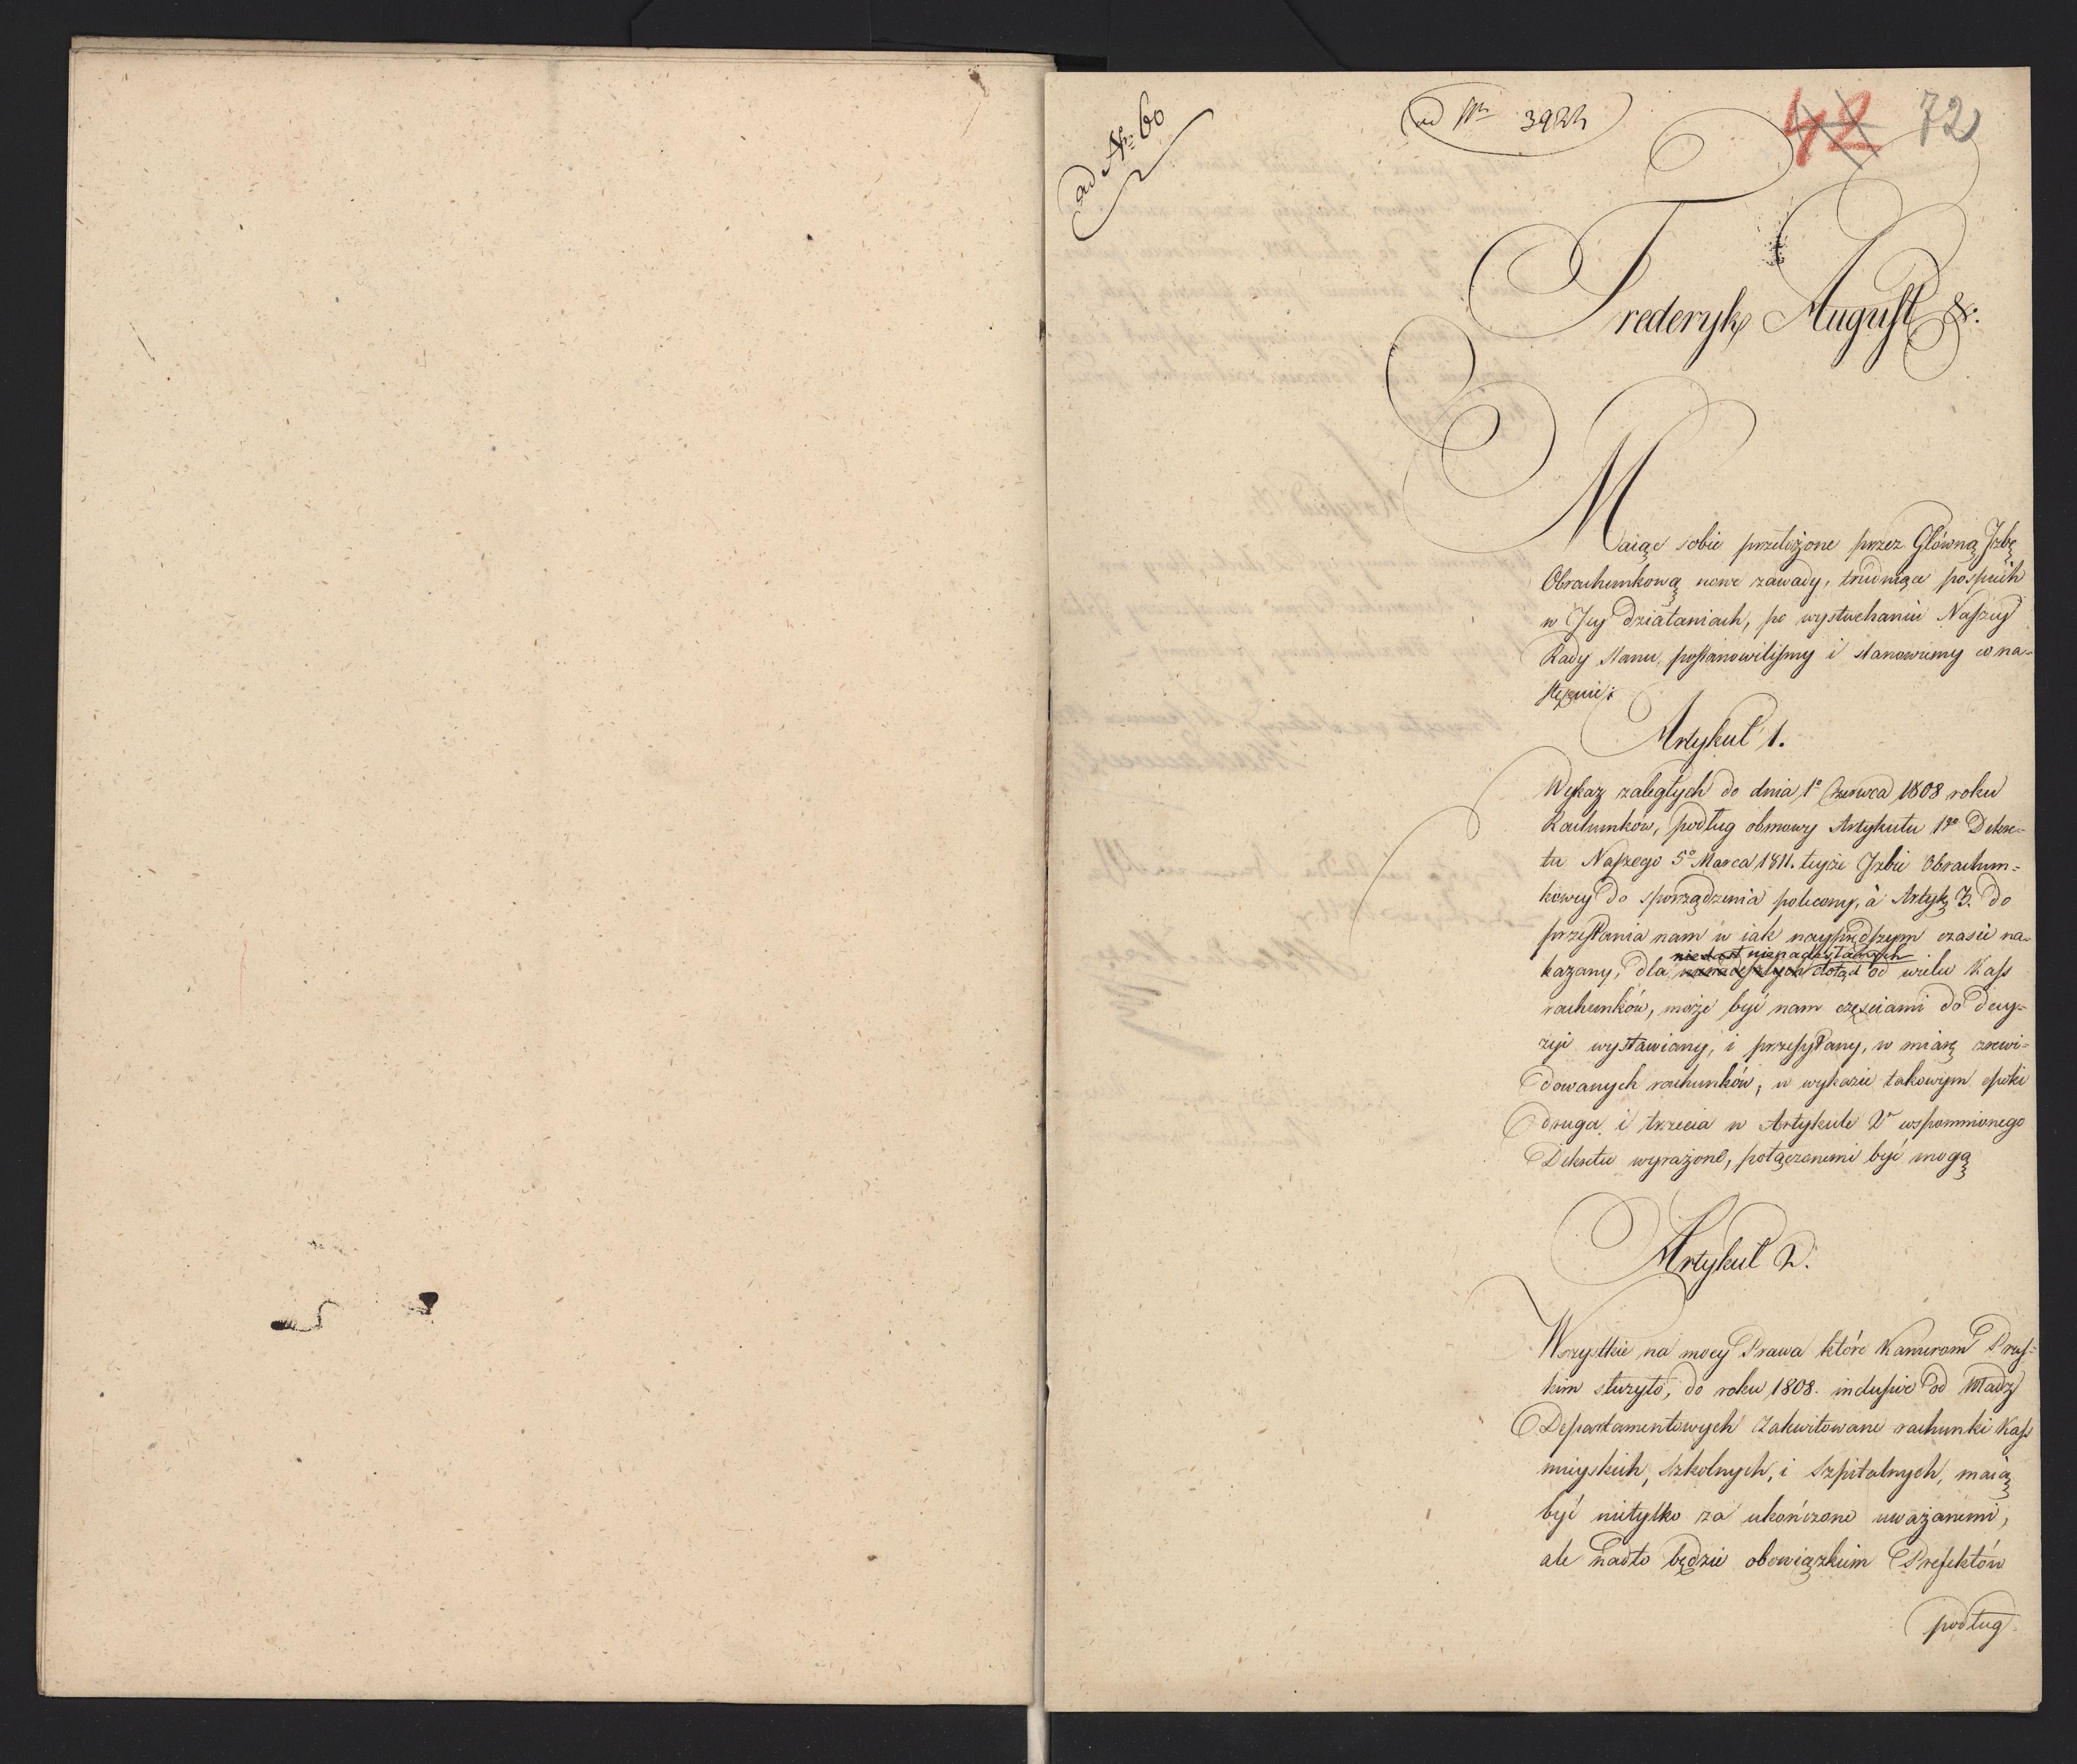 ad No 60
ad Nr 3922
42 72
Frederyk August &.
Maiąc sobie przełożone przez Główną Jzbę
Obrachunkową nowe zawady, trudniące pospiech
w Jey działaniach, po wysłuchaniu Naszey
Rady Stanu, postanowiliśmy i stanowiemy co na-
stępuie:
Artykuł 1.
Wykaz zaległych do dnia 1o Czerwca 1808 roku
Rachunków, podług obmowy Artykułu 1go Dekre-
tu Naszego 5o Marca 1811. teyże Jzbie Obrachun-
kowey do sporządzenia polecony, a Artyk 3. do
przesłania nam w iak nayprędszym czasie na-
kazany, dla nienadesłanych dotąd od wielu Kass
rachunków, może być nam częściami do decy-
zyi wystawiany, i przesyłany, w miarę zrewi-
dowanych rachunków, w wykazie takowym epoki
druga i trzecia w Artykule 2o wspomnionego
Dekretu wyrażone, połączonemi być mogą
Artykuł 2.
Wszystkie na mocy Prawa które Kamerom Prus-
kim służyło, do roku 1808. inclusive od Władz
Departamentowych zakwitowane rachunki Kass
mieyskich, szkolnych, i szpitalnych, maią
być nietylko za ukończone uważanemi,
ale nadto będzie obowiązkiem Prefektów
podług